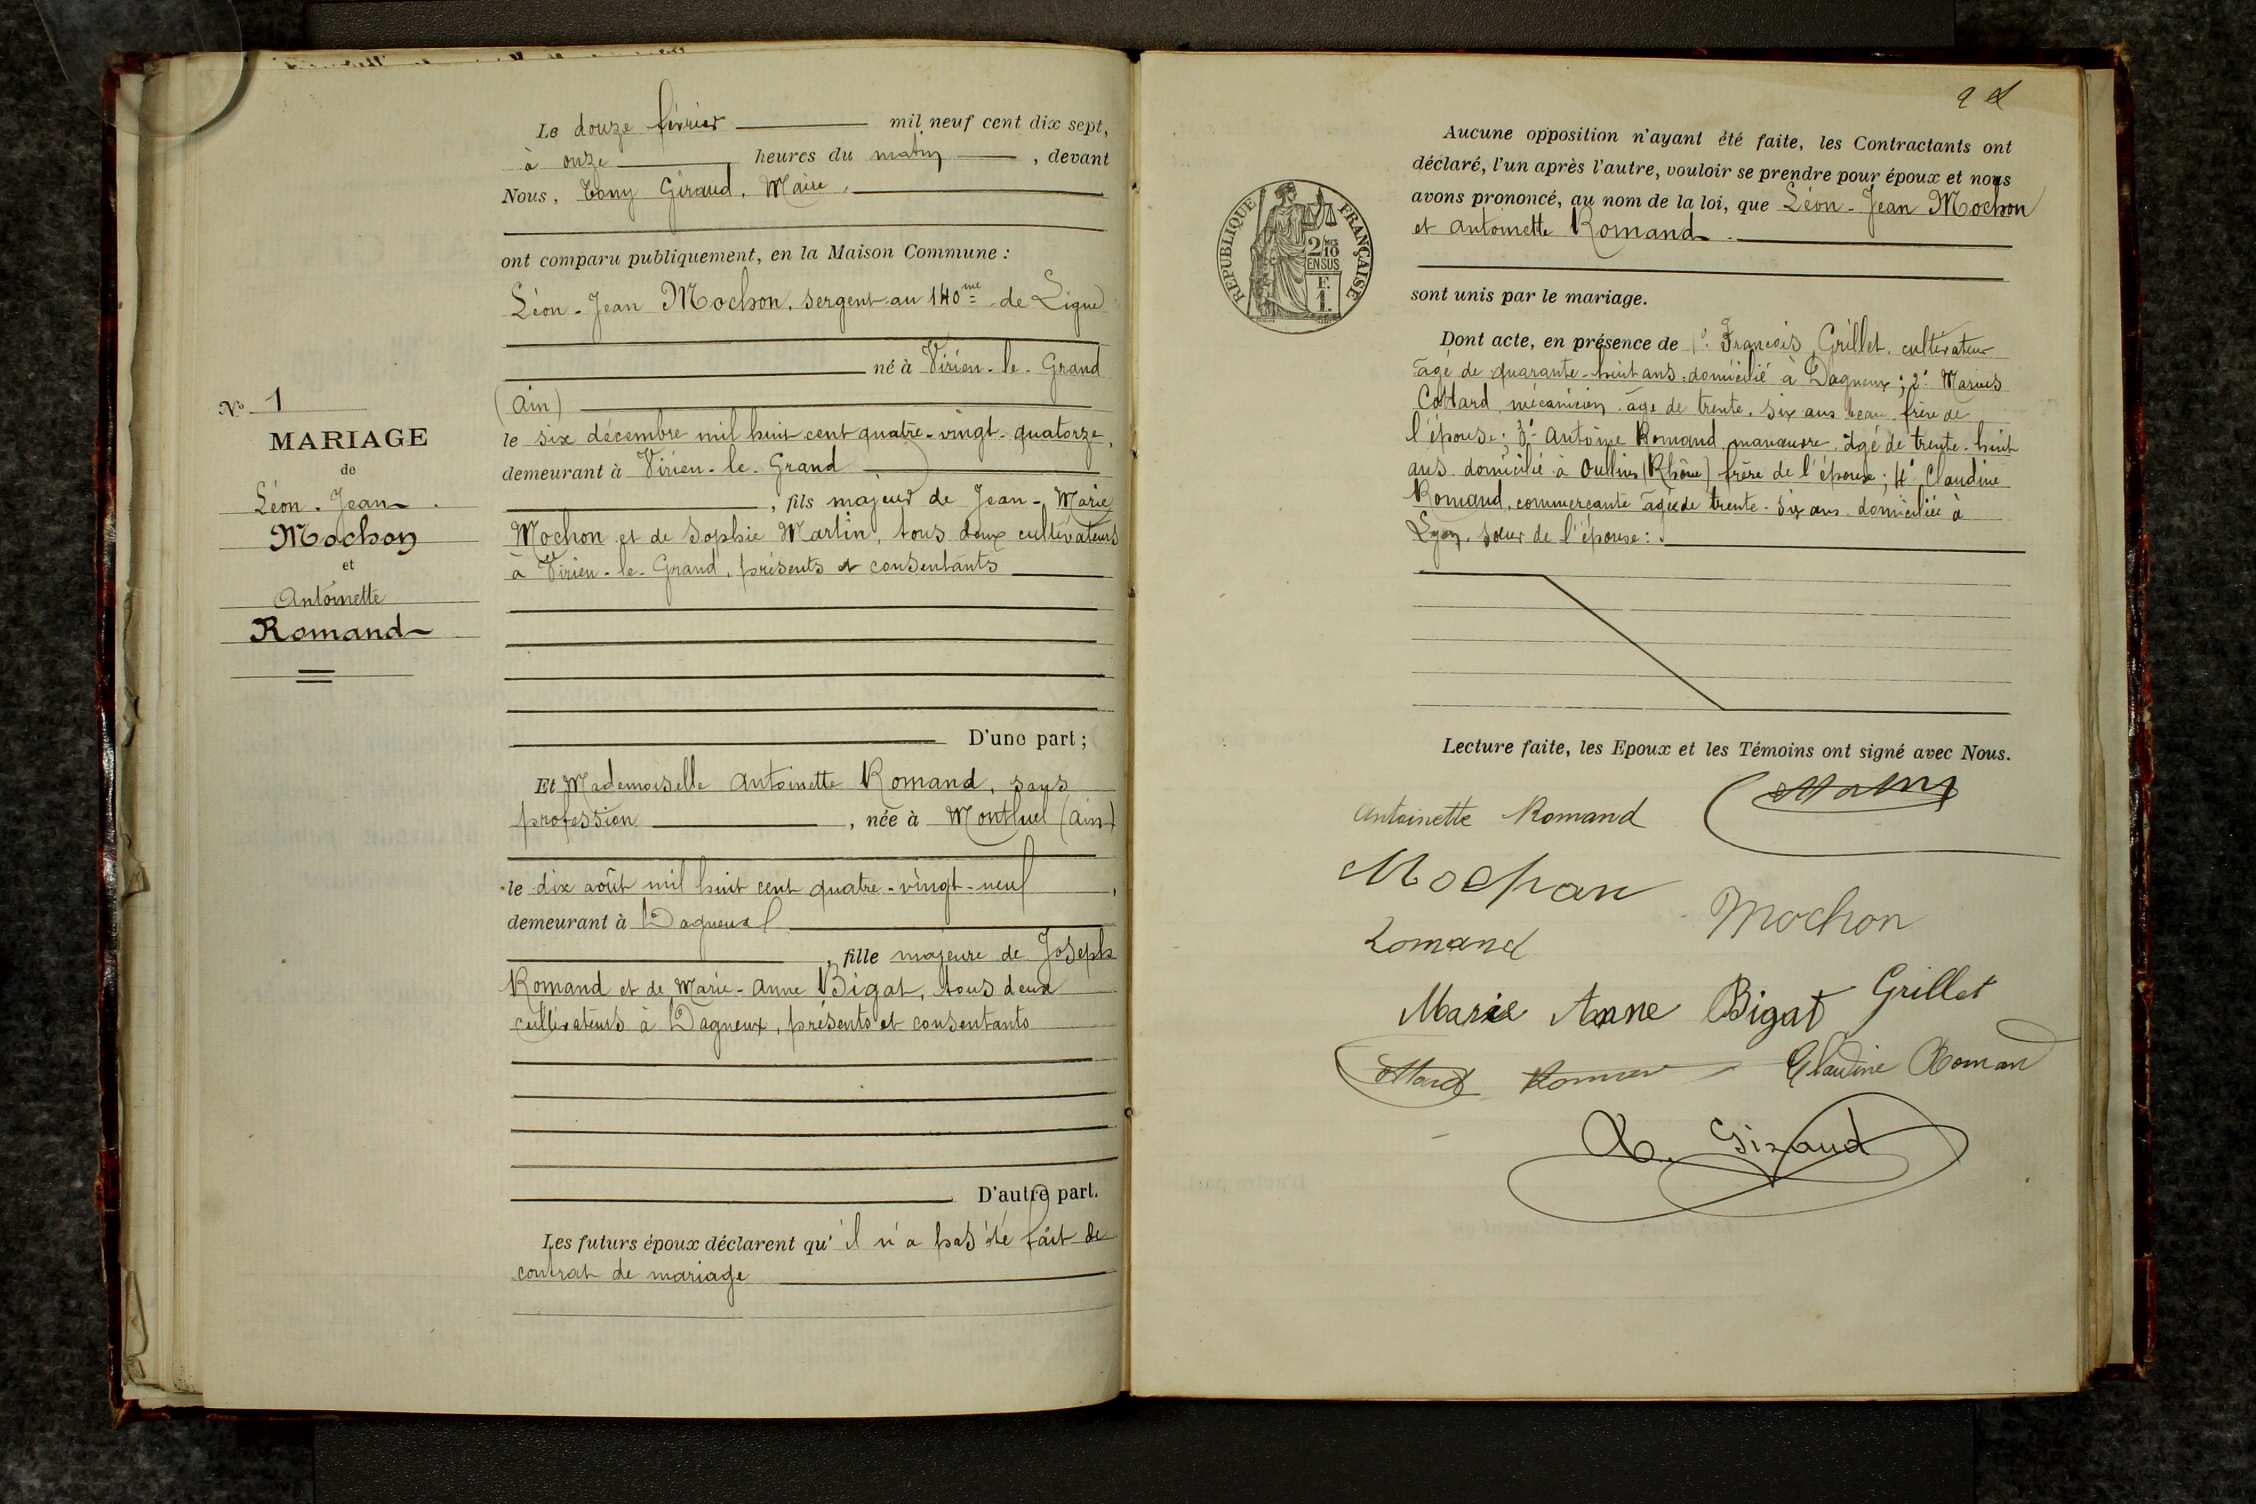 Le douze février mil neuf cent dix sept,
à onze heures du matin, devant
Nous, Tony Giraud, Maire,
ont comparu publiquement, en la Maison Commune :
Léon-Jean Mochon, sergent au 140me de Ligne
né à Virieu-le-Grand
(Ain)
le six décembre mil huit cent quatre-vingt-quatorze,
demeurant à Virieu-le-Grand
, fils majeur de Jean-Marie
Mochon et de Sophie Martin, tous deux cultivateurs
à Virieu-le-Grand, présents et consentants
D'une part ;
Et Mademoiselle Antoinette Romand, sans
profession, née à Montluel (Ain)
le dix août mil huit cent quatre-vingt-neuf,
demeurant à Dagneux
, fille majeure de Joseph
Romand et de Marie-Anne Bigat, tous deux
cultivateurs à Dagneux, présents et consentants
D'autre part.
Les futurs époux déclarent qu'il n'a pas été fait de
contrat de mariage
No 1
MARIAGE
de
Léon-Jean
Mochon
et
Antoinette
Romand
2
Aucune opposition n'ayant été faite, les Contractants ont
déclaré, l'un après l'autre, vouloir se prendre pour époux et nous
avons prononcé, au nom de la loi, que Léon-Jean Mochon
et Antoinette Romand.
sont unis par le mariage.
RÉPUBLIQUE FRANÇAISE
2/10
EN SUS
F.
1.
Dont acte, en présence de 1° François Grillet, cultivateur
âgé de quarante-huit ans, domicilié à Dagneux ; 2° Marius
Cottard, mécanicien, âgé de trente-six ans beau-frère de
l'épouse ; 3° Antoine Romand, manœuvre, âgé de trente-huit
ans domicilié à Oullins (Rhône) frère de l'épouse ; 4° Claudine
Romand, commerçante âgée de trente-six ans domiciliée à
Lyon, sœur de l'épouse :
Lecture faite, les Epoux et les Témoins ont signé avec Nous.
Antoinette Romand
Mochon
Mochon
Romand
Marie Anne Bigat Grillet
Cottard Claudine Romand
Giraud